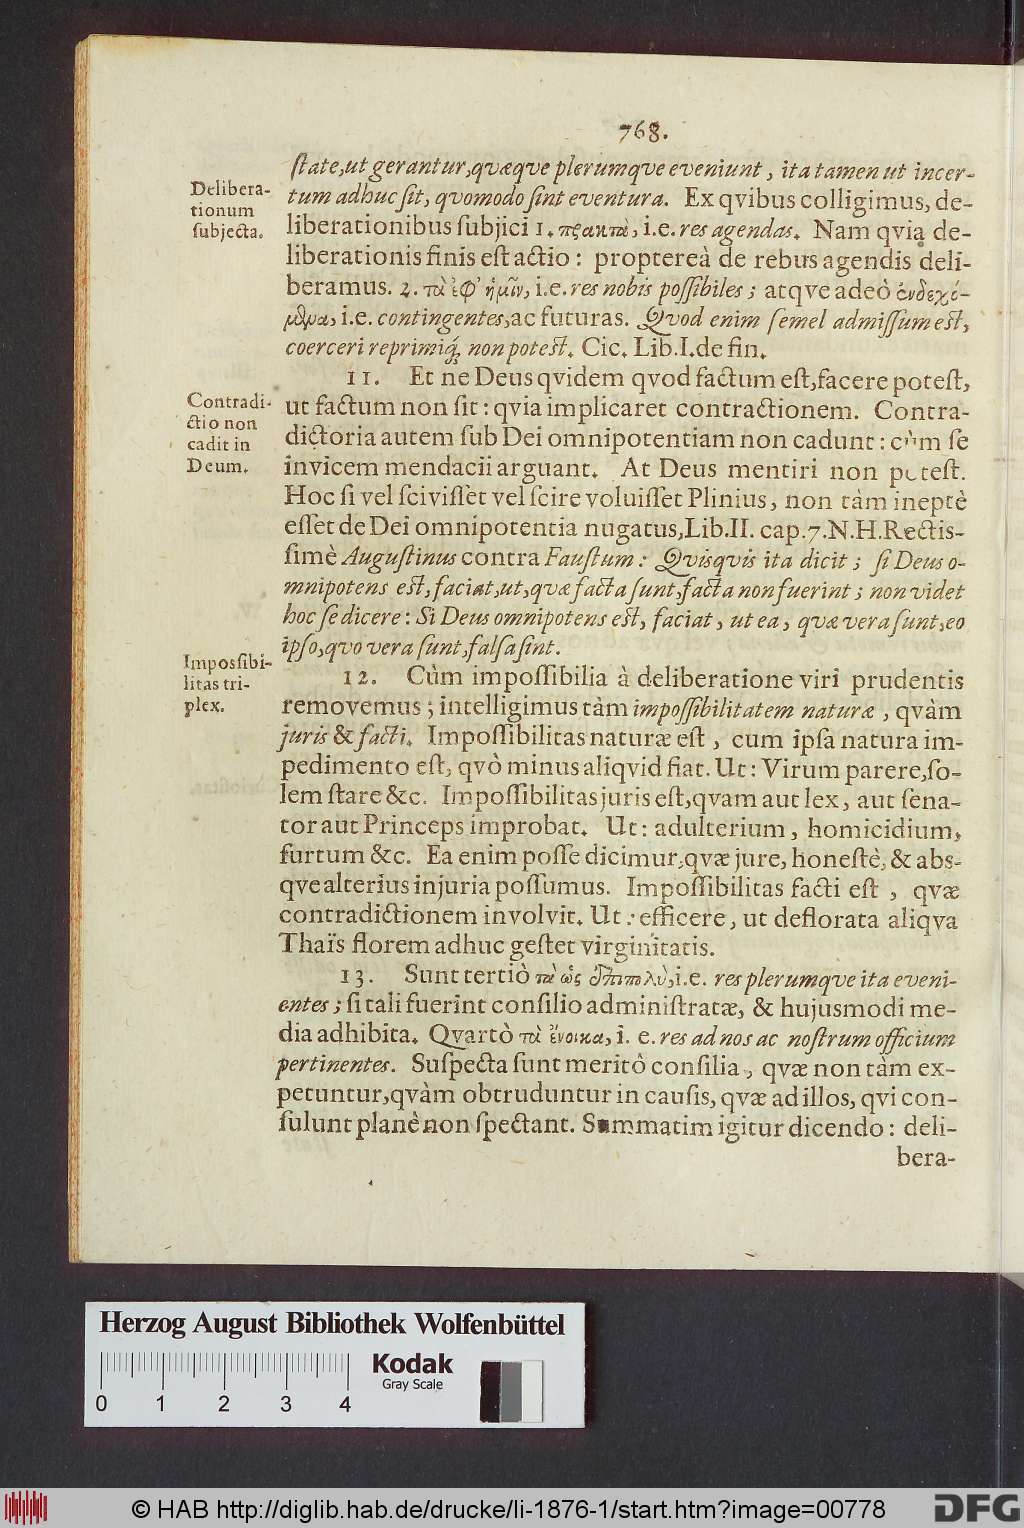 768.
ſtate, ut gerantur, quæque plerumque eveniunt, ita tamen ut incer-
tum adhuc ſit, quomodo ſint eventura. Ex qvibus colligimus, de-
liberationibus ſubjici 1. πρακτὰ, i.e. res agendas. Nam qvia de-
liberationis finis eſt actio: proptereà de rebus agendis deli-
beramus. 2. τὰ ἐφ' ἡμῖν, i.e. res nobis poſſibiles; atqve adeò ἐνδεχό-
μϑμα, i.e. contingentes, ac futuras. Quod enim ſemel admiſſum eſt,
coerceri reprimiq́; non poteſt. Cic. Lib. I. de fin.
Delibera-
tionum
ſubjecta.
11. Et ne Deus qvidem qvod factum eſt, facere poteſt,
ut factum non ſit: qvia implicaret contractionem. Contra-
dictoria autem ſub Dei omnipotentiam non cadunt: cùm ſe
invicem mendacii arguant. At Deus mentiri non poteſt.
Hoc ſi vel ſciviſſet vel ſcire voluiſſet Plinius, non tàm ineptè
eſſet de Dei omnipotentia nugatus, Lib. II. cap. 7. N. H. Rectis-
ſimè Auguſtinus contra Fauſtum: Quisquis ita dicit; ſi Deus o-
mnipotens eſt, faciat, ut, quæ facta ſunt, facta non fuerint; non videt
hoc ſe dicere: Si Deus omnipotens eſt, faciat, ut ea, quæ vera ſunt, eo
ipſo, quo vera ſunt, falſa ſint.
Contradi-
ctio non
cadit in
Deum.
12. Cùm impoſſibilia à deliberatione viri prudentis
removemus; intelligimus tàm impoſſibilitatem naturæ, qvàm
juris & facti. Impoſſibilitas naturæ eſt, cum ipſa natura im-
pedimento eſt, qvò minus aliqvid fiat. Ut: Virum parere, ſo-
lem ſtare &c. Impoſſibilitas juris eſt, qvam aut lex, aut ſena-
tor aut Princeps improbat. Ut: adulterium, homicidium,
furtum &c. Ea enim poſſe dicimur, qvæ jure, honeſtè, & abs-
qve alterius injuria poſſumus. Impoſſibilitas facti eſt, qvæ
contradictionem involvit. Ut: efficere, ut deflorata aliqva
Thaïs florem adhuc geſtet virginitatis.
Impossibi-
litas tri-
plex.
13. Sunt tertiò τὰ ὡς ἐπιπολὺ, i.e. res plerumque ita eveni-
entes; ſi tali fuerint conſilio adminiſtratæ, & hujusmodi me-
dia adhibita. Qvartò τὰ ἔνοικα, i. e. res ad nos ac noſtrum officium
pertinentes. Suſpecta ſunt meritò conſilia, qvæ non tàm ex-
petuntur, qvàm obtruduntur in cauſis, qvæ ad illos, qvi con-
ſulunt planè non ſpectant. Summatim igitur dicendo: deli-
bera-
Herzog August Bibliothek Wolfenbüttel
Kodak
Gray Scale
0 1 2 3 4
© HAB http://diglib.hab.de/drucke/li-1876-1/start.htm?image=00778
DFG